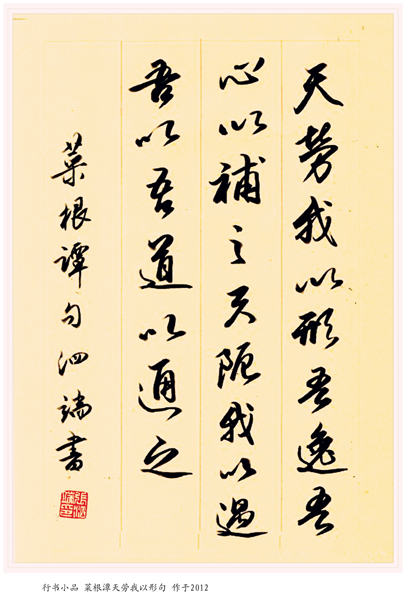 天劳我以形吾逸吾
心以補之天阨我以遇
吾以吾道以通之
菜根譚句泗端書
行书小品 菜根潭天劳我以形句 作于2012